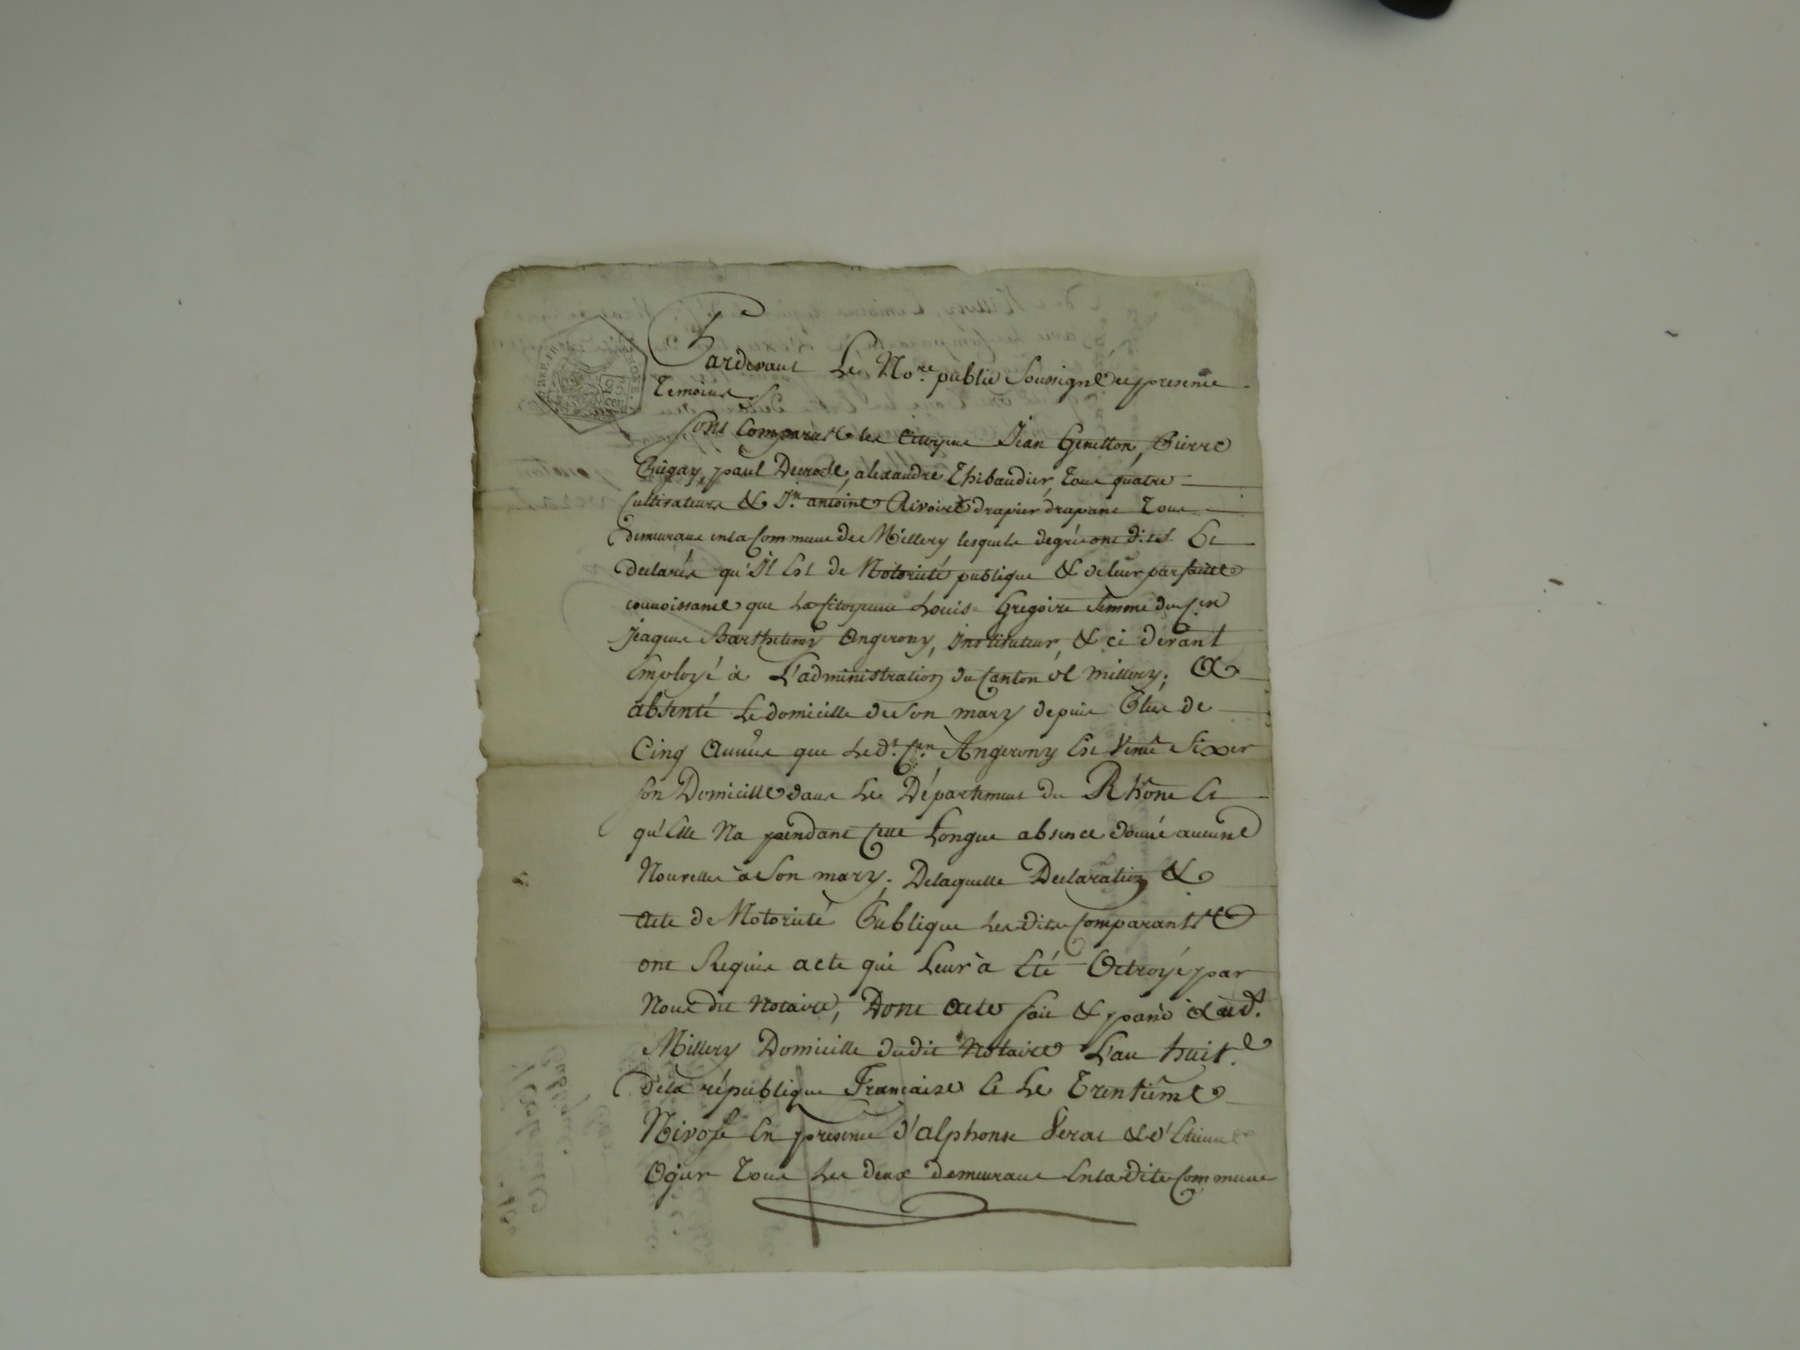 REP. FRA
25
cen
Pardevant Le No.re public Soussigné et presence
Temoins
Sont Comparus les Citoyens Jean Genetton, Pierre
paul Decrode, alexandre Thibaudier, Tous quatre
Cultivateurs & Jn. antoine Rivoire drapier drapant Tous
demeurans en la Commune de Millery lesquels de gré ont dites Et
declarés qu'Il Est de Notorieté publique & de leur parfaitte
connoissance que La Citoyenne Louis Gregoire femme du Cen
Jeaques Barthelemy Angerony, Instituteur, & ci devant
Employé à L'administration du Canton de millery; A
absenté Le domicille de Son mary depuis Plus de
Cinq Années que Le dt. Cen. Angerony Est Venu Fixer
Son Domicille dans Le Département du Rhône Et
qu'Elle Na pendant Cette Longue absence donné aucune
Nouvelles à Son mary; De laquelle Declaration &
acte de Notorieté Publique Les dits Comparants
ont Requis acte qui Leur à Eté Octroyé par
Nous dit Notaire, Dont acte fait & passé audt.
Millery Domicille dudit Notaire L'an huit.e
de la république Française Et Le Trentième
Nivose En presence d'alphonse Verat & d'Etienne
Ogier Tous Les deux demeurans En la dite Commune